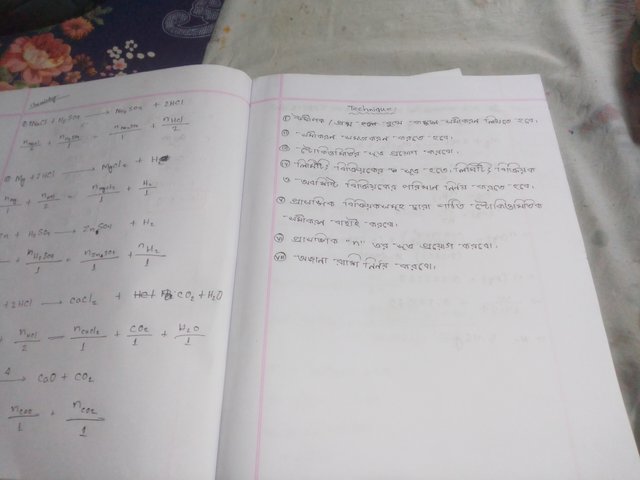 Chemistry
2NaCl + H₂SO₄ → Na₂SO₄ + 2HCl
nNaCl/2 + nH₂SO₄/1 nNa₂SO₄/1 + nHCl/2
Mg + 2HCl → MgCl₂ + H
nMg/1 + nHCl/2 = nMgCl₂/1 + H₂/1
Zn + H₂SO₄ → ZnSO₄ + H₂
nH₂SO₄/1 = nZnSO₄/1 + nH₂/1
+ 2HCl → CaCl₂ + CO₂ + H₂O
+ nHCl/2 = nCaCl₂/1 + CO₂/1 + H₂O/1
Δ → CaO + CO₂
nCaO/1 + nCO₂/1
Technique:
সমীকরণ লিখতে হবে।
ii সমীকরণ সমতাকরণ করতে হবে।
iii স্টোকিওমিতির সূত্র প্রয়োগ করবো।
iv লিমিটিং বিক্রিয়কের সূত্র হতে, লিমিটিং বিক্রিয়ক
ও অবশিষ্ট বিক্রিয়কের পরিমাণ নির্ণয় করতে হবে।
v প্রাসঙ্গিক বিক্রিয়কসমূহ দ্বারা গঠিত স্টোকিওমিতিক
সমীকরণ বাছাই করবো।
vi প্রাসঙ্গিক "n" এর সূত্র প্রয়োগ করবো।
vii অজানা রাশি নির্ণয় করবো।